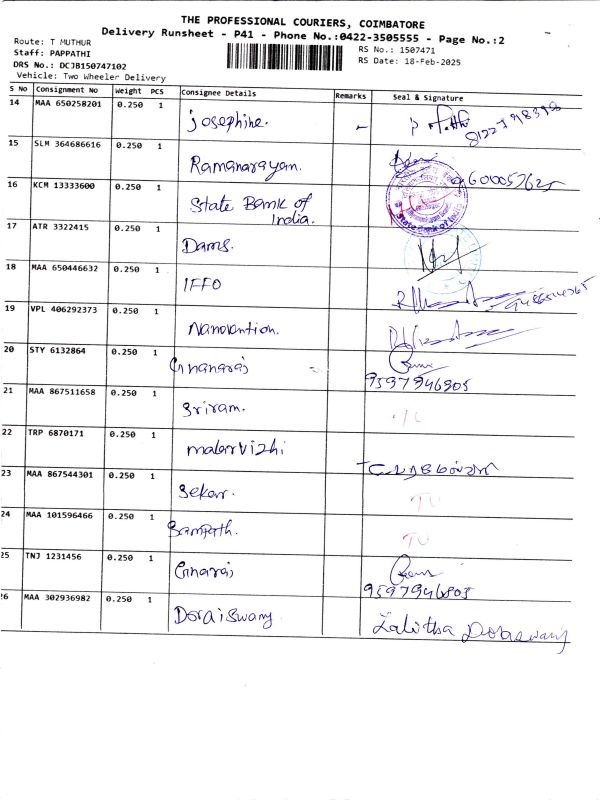 THE PROFESSIONAL COURIERS, COIMBATORE
Delivery Runsheet - P41 - Phone No.:0422-3505555 - Page No.:2
Route: T MUTHUR
Staff: PAPPATHI
DRS No.: DCJB150747102
Vehicle: Two Wheeler Delivery
RS No.: 1507471
RS Date: 18-Feb-2025
S No Consignment No Weight PCS Consignee Details Remarks Seal & Signature
14 MAA 650258201 0.250 1 josephine.
15 SLM 364686616 0.250 1 Ramanarayan.
16 KCM 13333600 0.250 1 State Bank of
India.
State Bank of India
17 ATR 3322415 0.250 1 Dams.
18 MAA 650446632 0.250 1 IFFO
19 VPL 406292373 0.250 1
20 STY 6132864 0.250 1 Gnanaraj
9597946805
21 MAA 867511658 0.250 1 Sriram.
22 TRP 6870171 0.250 1 malarvizhi
23 MAA 867544301 0.250 1 Sekar.
24 MAA 101596466 0.250 1 Sampath.
25 TNJ 1231456 0.250 1
9597946805
26 MAA 302936982 0.250 1 Doraiswamy Lalitha Doraswamy